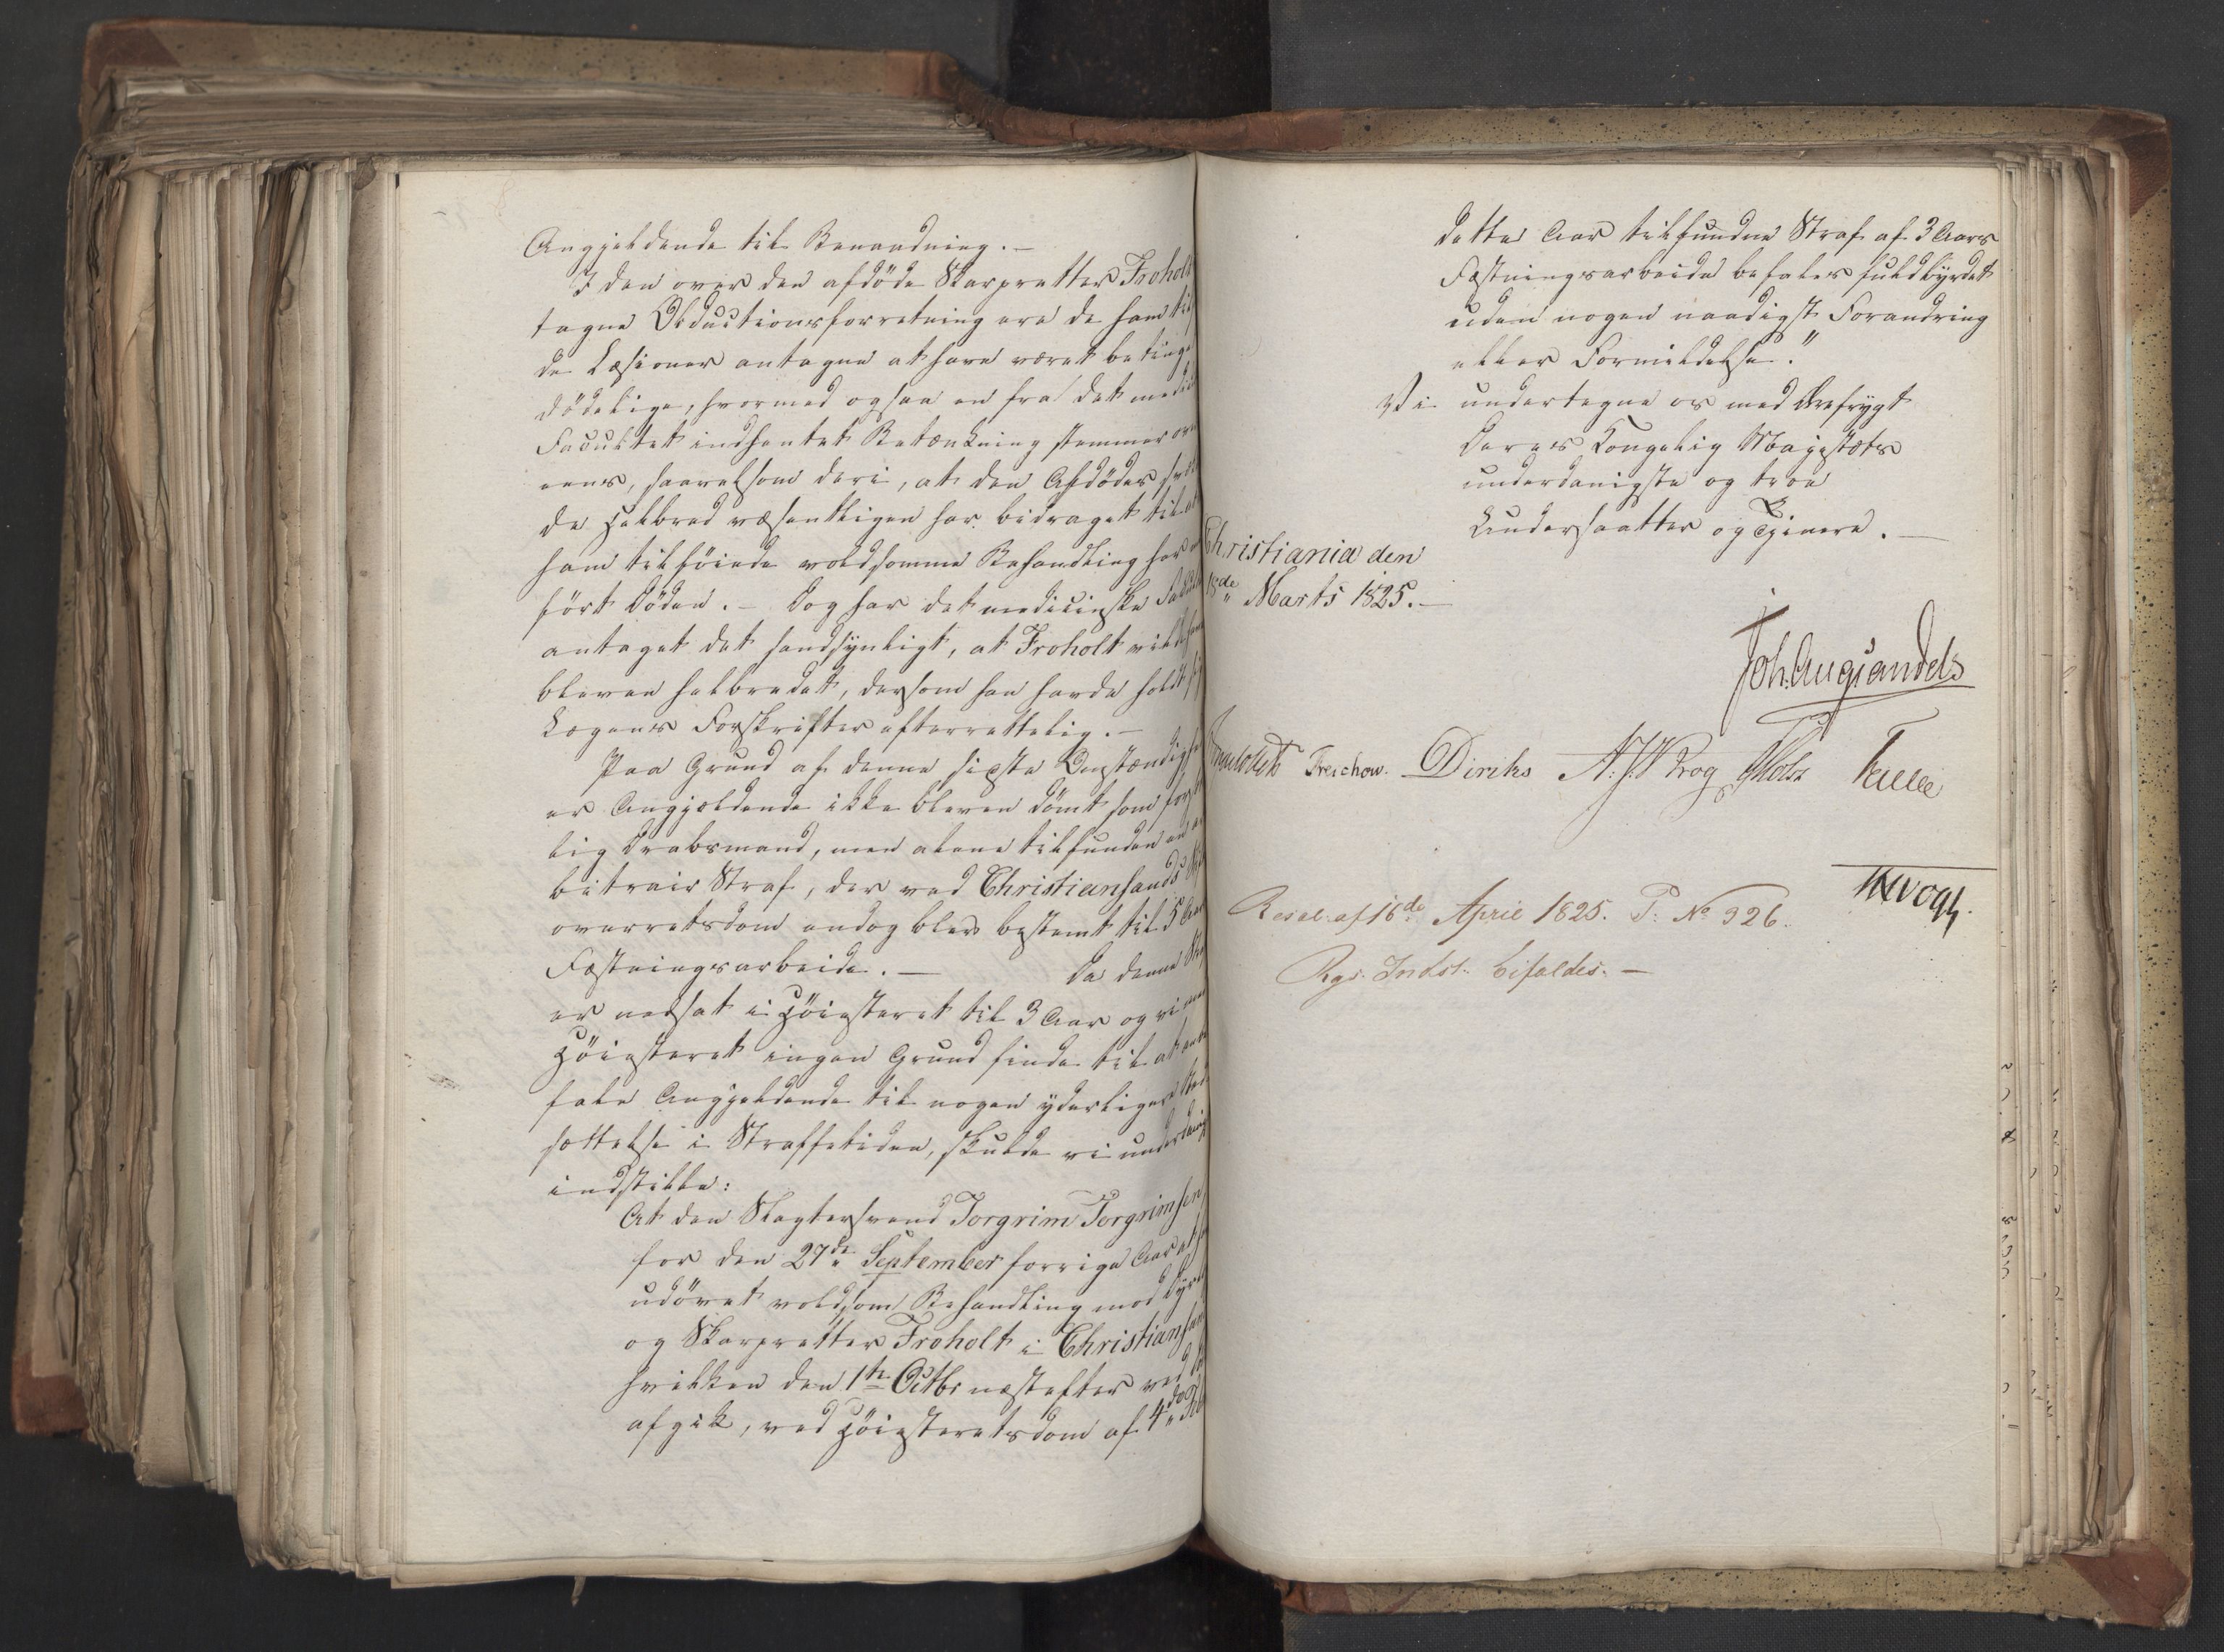 Angjeldende til Benaadning.—
I den over den afdöde Skarpretter Froholt
tagne Obductionsforretning ere de ham til
de Læsioner antagne at have været beting
dödelige, hvormed ogsaa en fra det medi
Facultet indhentet Betænkning stemmer ove
eens, saavelsom deri, at den Afdödes
de Helbred væsentligen har bidraget til at
ham tilföiede voldsomme Behandling har
fört Döden.— Dog har det medicinske
antaget det sandsynligt, at Froholt vilde
bleven helbredet, dersom han havde holdt
Lægens Forskrifter efterrettelig.—
Paa Grund af denne sidste Omstændig
er Angjældende ikke bleven dömt som
lig Drabsmand, men alene tilfunden en ar
bitrair Straf, der ved Christiansands
overretsdom endog blev bestemt til 5 Aar
Fæstningsarbeide.— Da denne
er nedsat i Höiesteret til 3 Aar og vi
Höiesteret ingen Grund finde til at anbe
fale Angjeldende til nogen yderligere Ned
sættelse i Straffetiden, skulde vi underdanig
indstille:
At den Slagtersvend Torgrim Torgrimsen,
for den 27de September forrige Aar at
udövet voldsom Behandling mod
og Skarpretter Froholt i Christiansan
hvilken den 1te Octbr næstefter ved
afgik, ved Höiesteretsdom af 4de
dette Aar tilfundne Straf af 3 Aars
Fæstningsarbeide befales fuldbyrdet
uden nogen naadigst Forandring
eller Formildelse."
Vi undertegne os med Ærefrygt
Deres Kongelig Majestæts
underdanigste og troe
Undersaatter og Tjenere.—
Christiania den
18de Marts 1825.—
Joh. Aug. Sandels
Treschow. Diriks Krog Holst Fasting
Resol: af 16de April 1825. P: No 326.
JHVogt.
Rgs. Indst. bifaldes.—